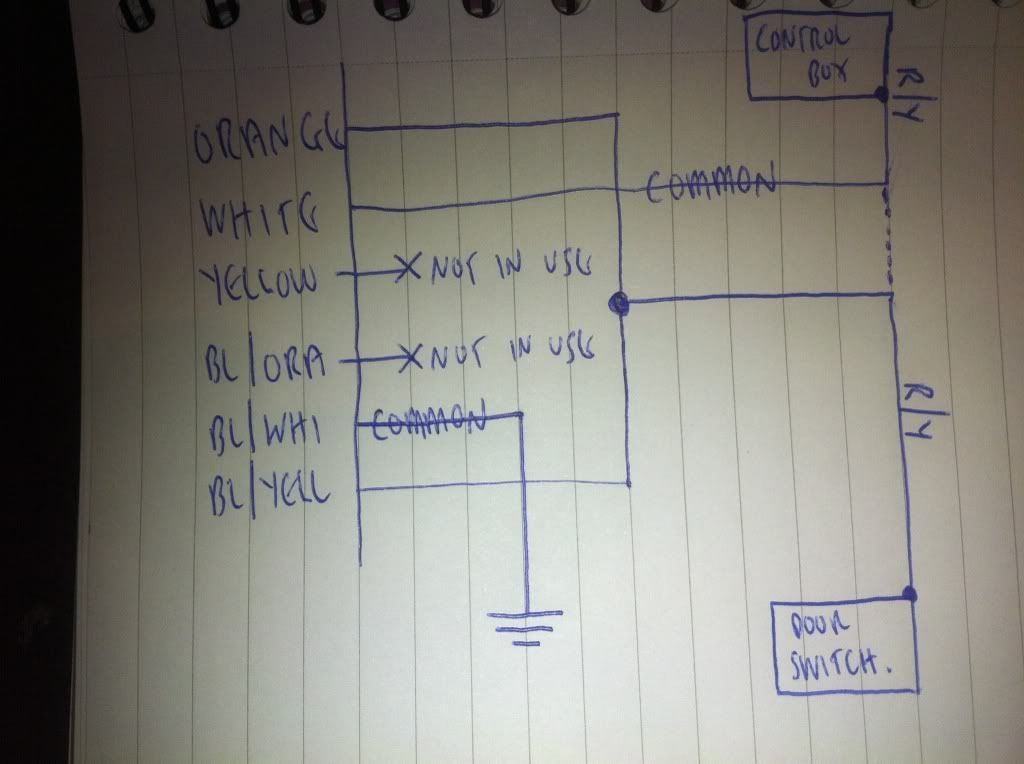 CONTROL
BOX
R/Y
ORANGE
COMMON
WHITE
YELLOW
NOT IN USE
BL/ORA
NOT IN USE
R/Y
BL/WHI
COMMON
BL/YELL
DOOR
SWITCH.